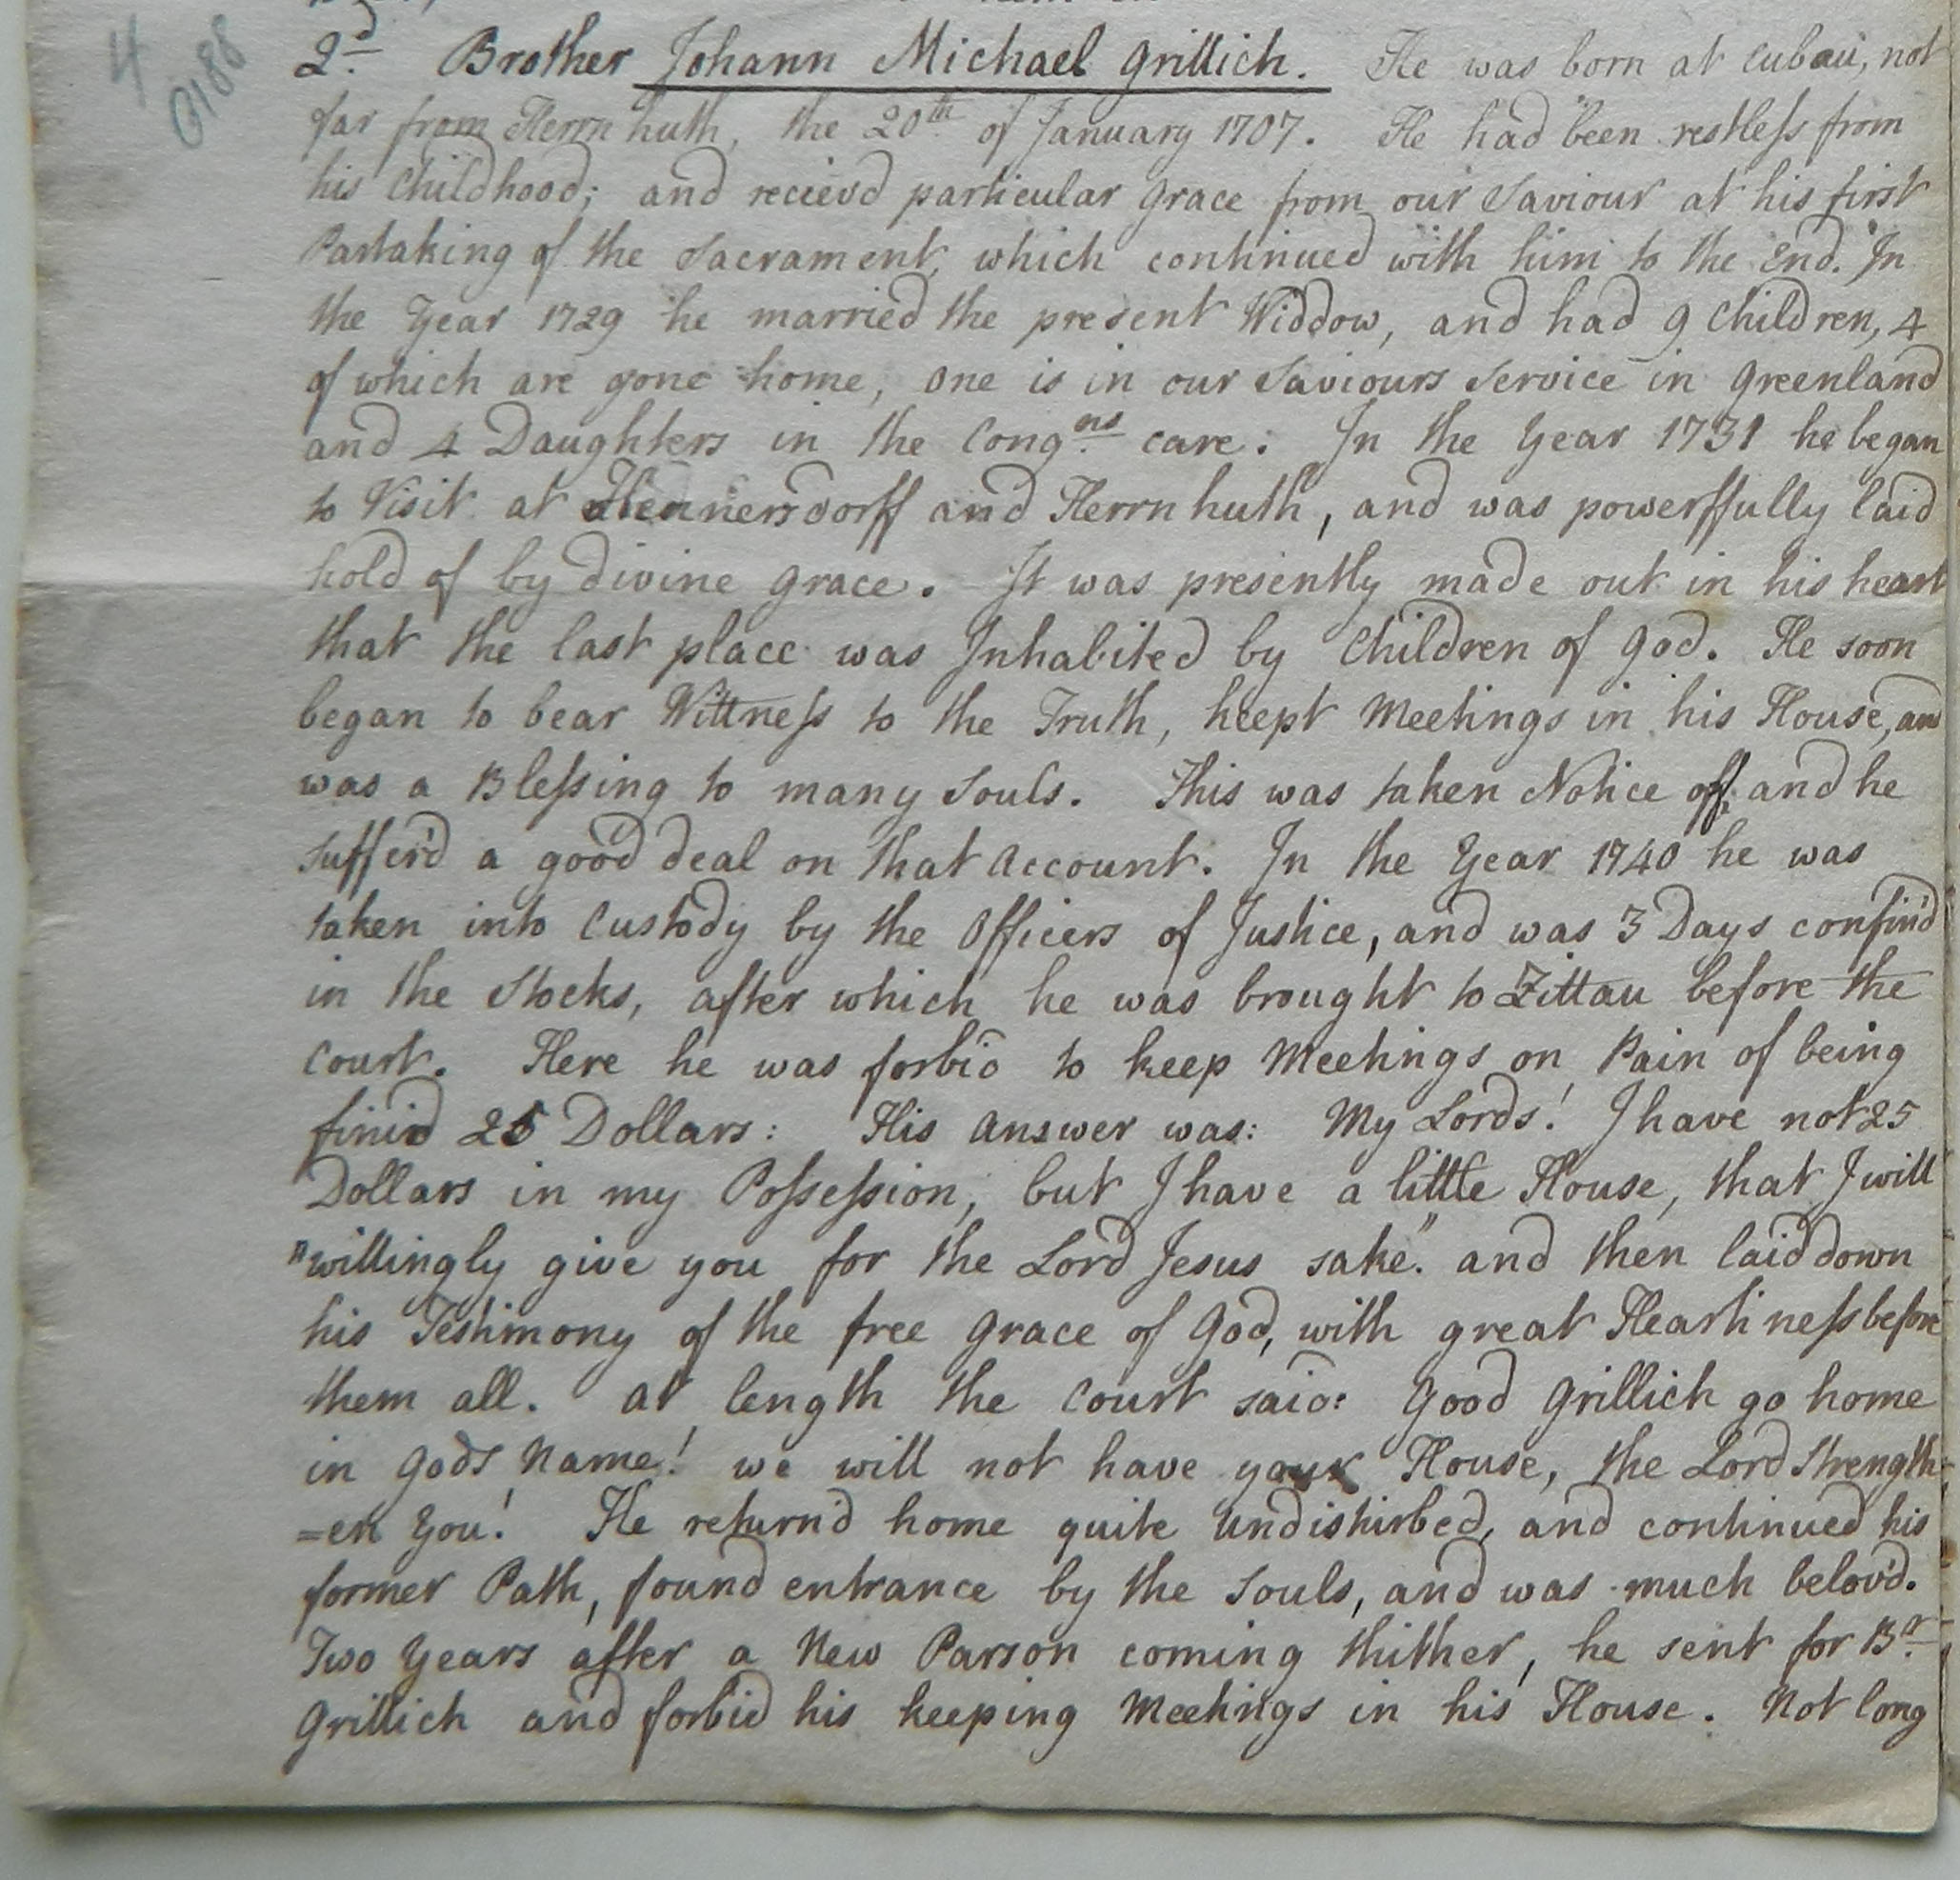 4
2.d Brother Johann Michael Grillich. He was born at Cubau, not
far from Herrnhuth, the 20th of January 1707. He had been restless from
his Childhood; and recievd particular Grace from our Saviour at his first
Partaking of the Sacrament, which continued with him to the End. In
the Year 1729 he married the present Widdow, and had 9 Children, 4
of which are gone home, one is in our Saviours Service in Greenland
and 4 Daughters in the Congns care. In the Year 1731 he began
to Visit at Hennersdorff and Herrnhuth, and was powerffully laid
hold of by divine Grace. It was presently made out in his heart
that the last place was Inhabited by Children of God. He soon
began to bear Wittness to the Truth, keept Meetings in his House, and
was a Blessing to many Souls. This was taken Notice off, and he
suffer'd a good deal on that Account. In the Year 1740 he was
taken into Custody by the Officers of Justice, and was 3 Days confin'd
in the Stocks, after which he was brought to Zittau before the
Court. Here he was forbid to keep Meetings on Pain of being
fin'd 25 Dollars: His Answer was: My Lords! I have not 25
Dollars in my Possession, but I have a little House, that I will
"willingly give you for the Lord Jesus sake." and then laid down
his Testimony of the free Grace of God, with great Heartiness before
them all. At length the Court said: Good Grillich go home
in Gods Name! we will not have your House, the Lord Strength-
=en You! He return'd home quite Undisturbed, and continued his
former Path, found entrance by the Souls, and was much belov'd.
Two Years after a New Parson coming thither, he sent for Br.
Grillich and forbid his keeping Meetings in his House. Not long